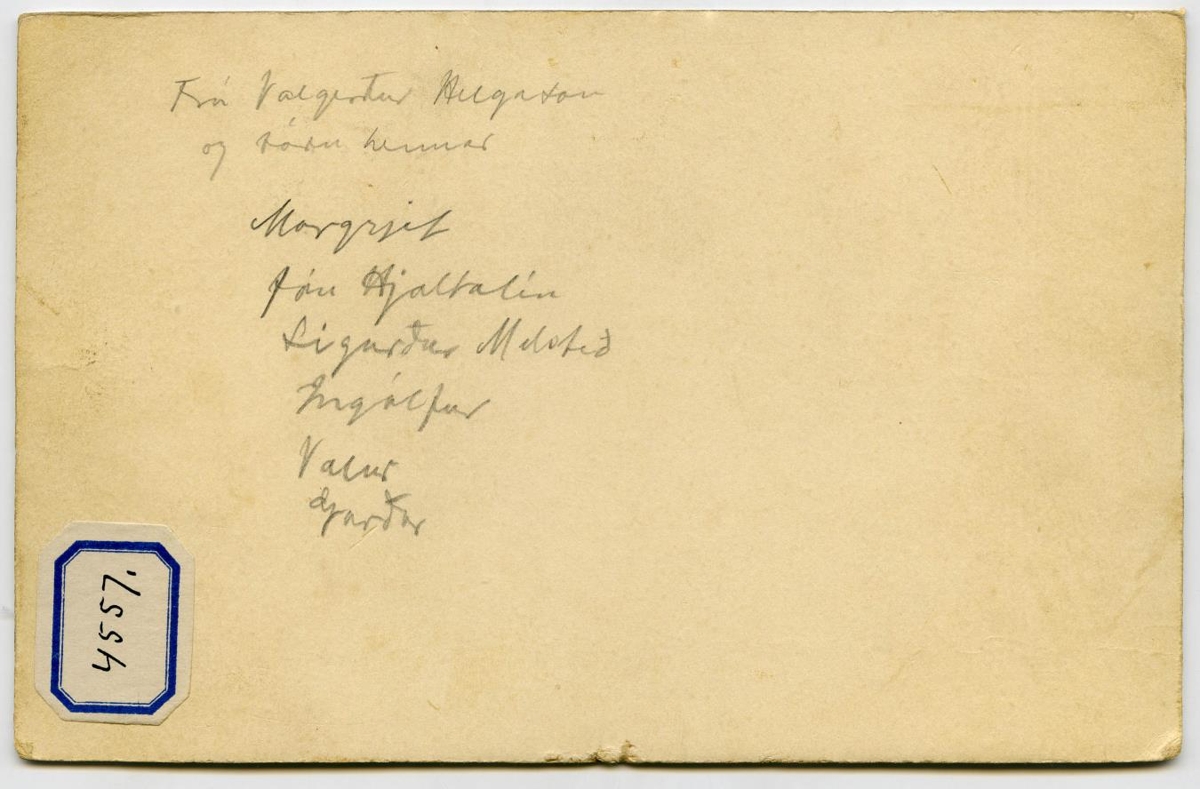 Frú Valgerður Helgason
og börn hennar
Margrjet
Jón Hjaltalín
Sigurður Melsteð
Ingólfur
Valur
Garðar
4557.